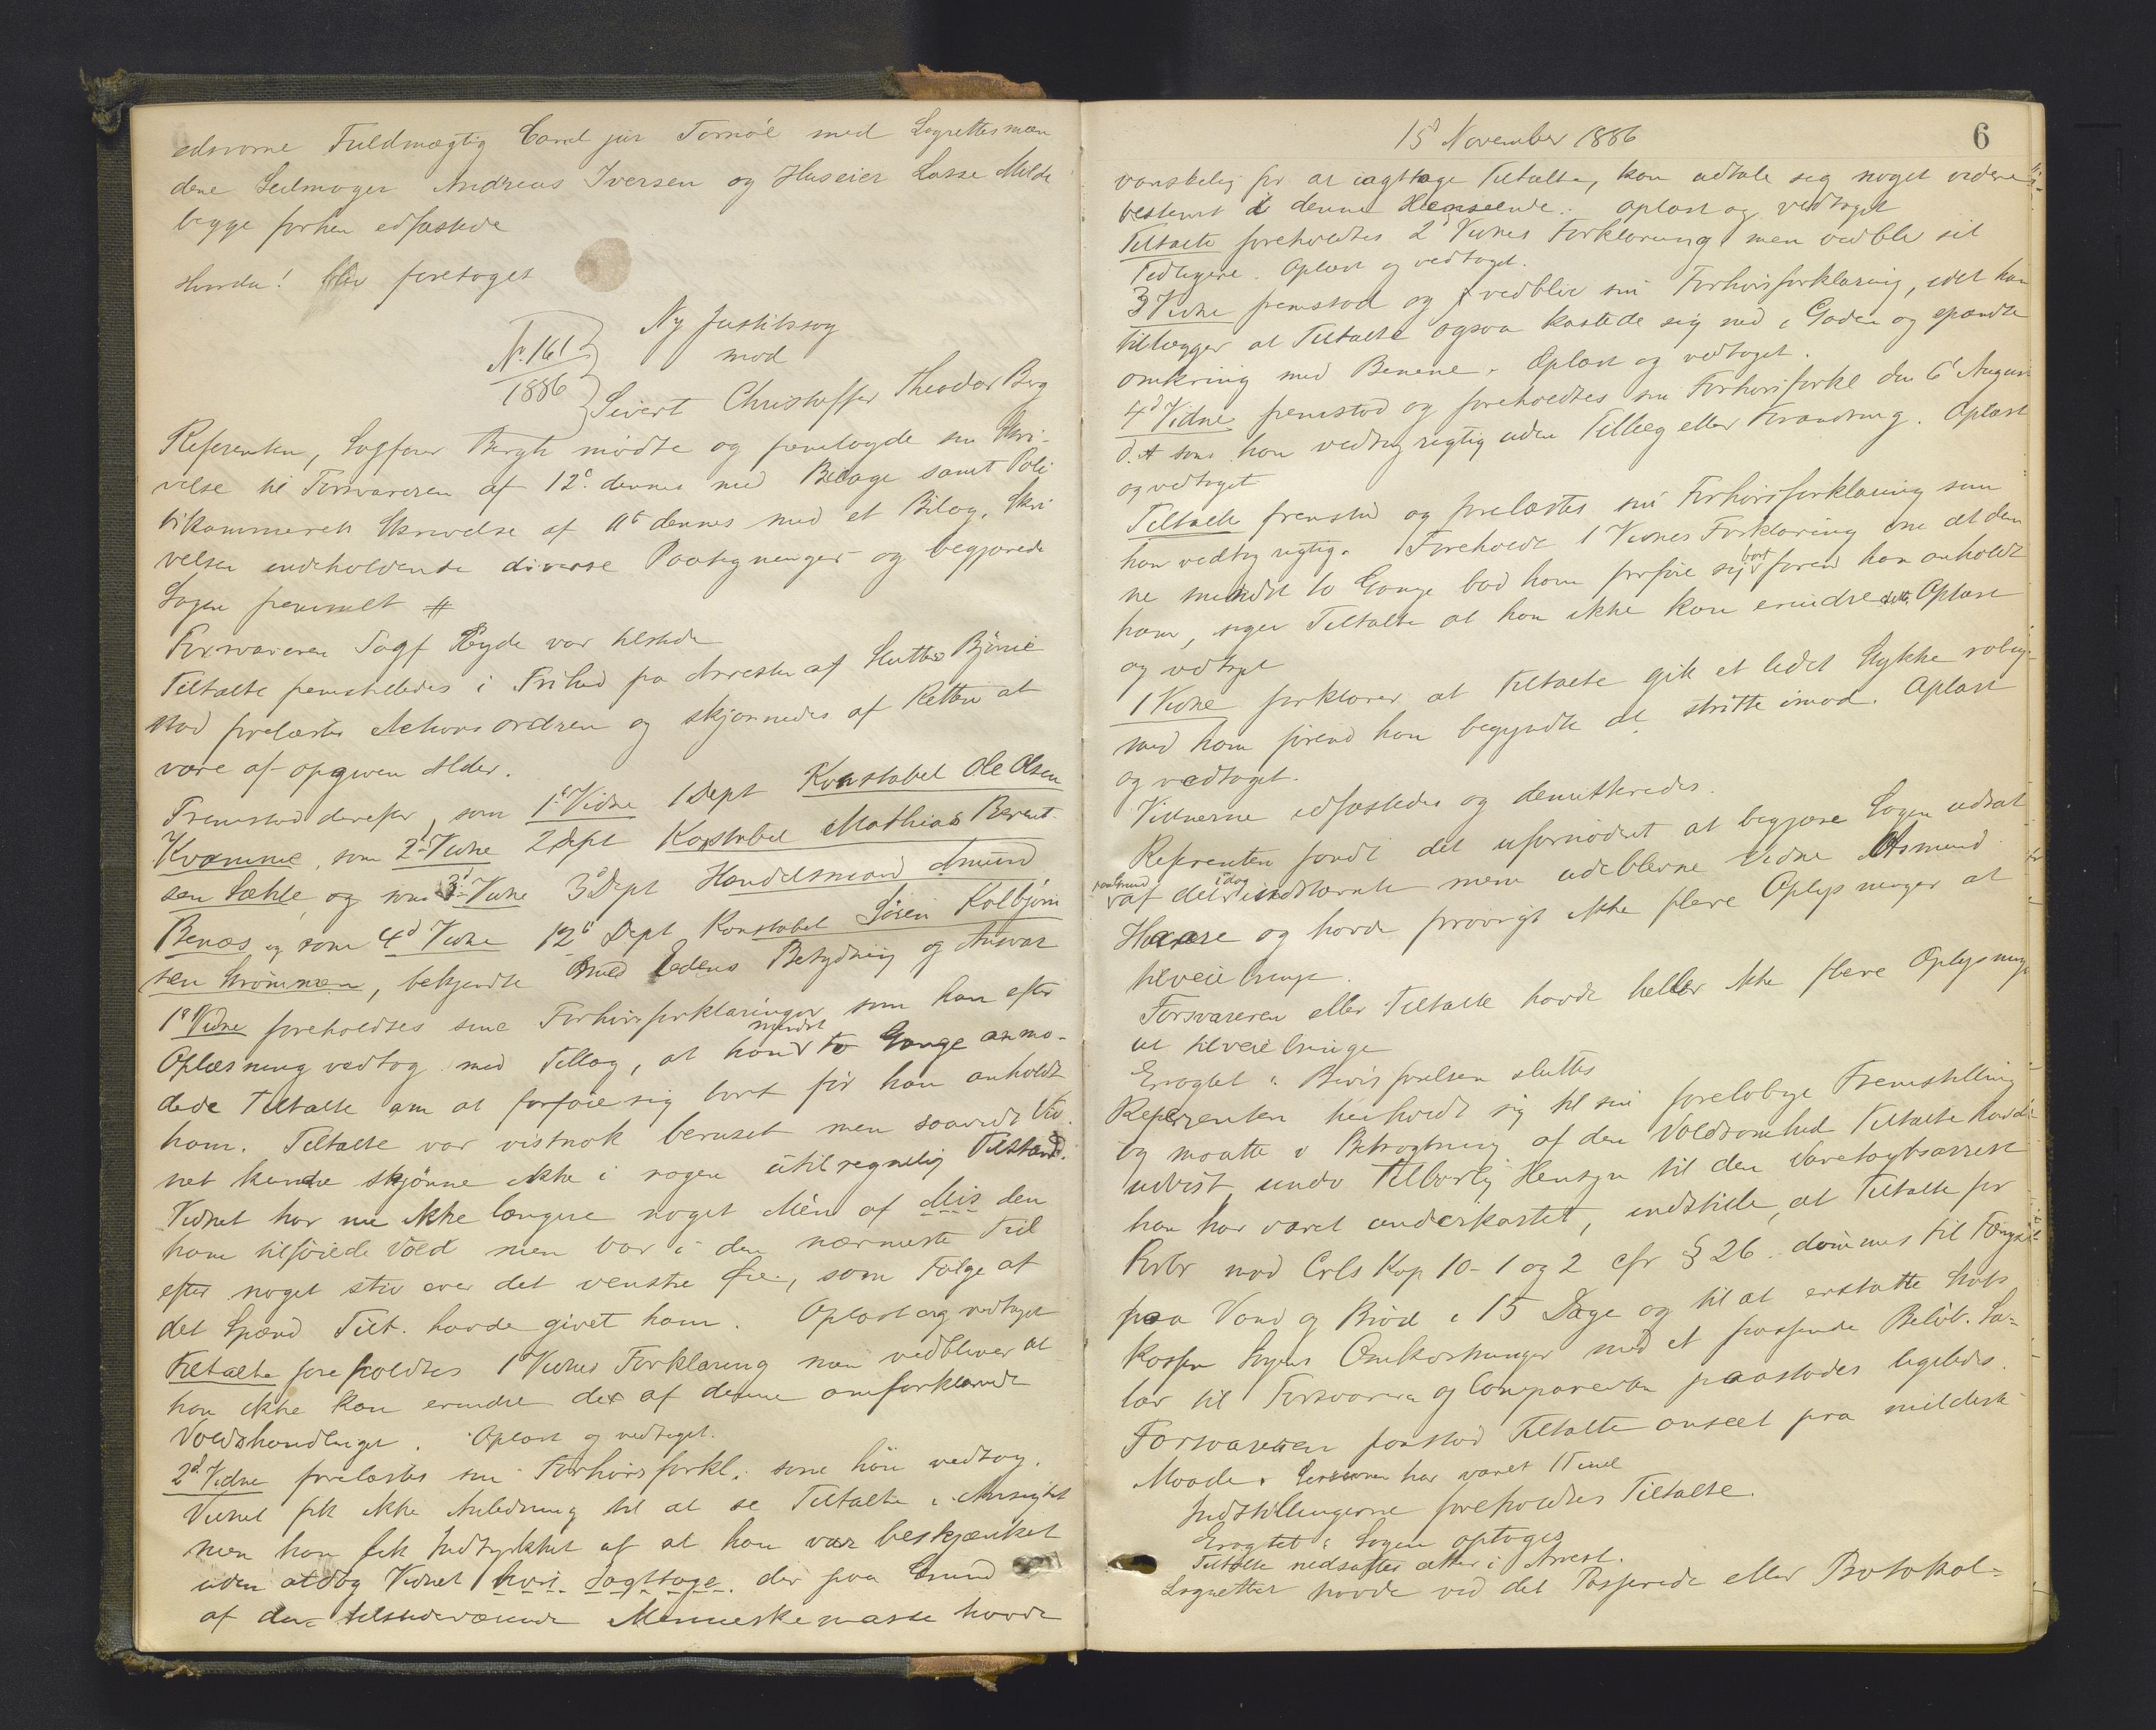 edsvorne Fuldmægtig Cand jur Tornøe med Lagrettesmæn
dene Seilmager Andreas Iversen og Huseier Lasse Milde
begge forhen edfæstede
Hvorda! blev foretaget
Ny Justitssag
No 161
1886
mod
Sivert Christoffer Theodor Berg
Referenten, Sagfører Bergh mødte og fremlagde sin Skri-
velse til Forsvareren af 12te dennes med Bilage samt Poli
tikammerets Skrivelse af 11te dennes med et Bilag, Skri
velsen indeholdende diverse Paategninger og begjærede
Sagen fremmet #
Forsvareren Sagf Ryde var tilstede
Tiltalte fremstilledes i Frihed fra Arresten af Slutter Bjørne
stad forelæstes Actionsordren og skjønnedes af Retten at
være af opgiven Alder.
Fremstod derefter, som 1ste Vidne 1 Dept Konstabel Ole Olsen
Kvamme, som 2det Vidne 2 Dept Konstabel Mathias Bernt-
sen Sæhle, og som 3die Vidne 3die Dept Handelsmand Amund
Benæs og som 4de Vidne 12te Dept Konstabel Søren Kolbjørn
sen Strømmen, bekjendte med Edens Betydning og Ansvar
1ste Vidne foreholdtes sine Forhørsforklaringer som han efter
Oplæsning vedtog med Tillæg, at han mindst to Gange anmo-
dede Tiltalte om at forføie sig bort før han anholdt
ham. Tiltalte var vistnok beruset men saavidt Vid
net kunde skjønne ikke i nogen utilregnelig Tilstand.
Vidnet har nu ikke længere noget Mén af den
ham tilføiede Vold men var i den nærmeste Tid
efter noget stiv over det venstre Øie, som Følge af
det Spænd Tilt. havde givet ham. Oplæst og vedtaget
Tiltalte foreholdtes 1ste Vidnes Forklaring men vedbliver at
han ikke kan erindre det af denne omforklarede
Voldshandlinger. Oplæst og vedtaget.
2det Vidne forelæstes sin Forhørsforkl. som han vedtog.
Vidnet fik ikke Anledning til at se Tiltalte i Ansigtet
men han fik Indtrykket af at han var beskjænket
uden at dog Vidnet iagttage, der paa Grund
af den tilstedeværende Menneskemasse havde
15de November 1886
6
vanskelig for at iagttage Tiltalte, kan udtale sig noget videre
bestemt i denne Henseende. Oplæst og vedtaget
Tiltalte foreholdtes 2det Vidnes Forklaring men vedblev sit
Tidligere. Oplæst og vedtaget.
3die Vidne fremstod og vedblev sin Forhørsforklaring, idet han
tillægger at Tiltalte ogsaa kastede sig ned i Gaden og spændte
omkring med Benene. Oplæst og vedtaget.
4de Vidne fremstod og foreholdtes sin Forhørsforkl den 6te August
d. A som han vedtog rigtig uden Tillæg eller Forandring. Oplæst
og vedtaget
Tiltalte fremstod og forelæstes sin Forhørsforklaring som
han vedtog rigtig. Foreholdt 1 Vidnes Forklaring om at den
ne mindst to Gange bad ham forføie sig bort førend han anholdt
ham, siger Tiltalte at han ikke kan erindre dette. Oplæst
og vedtaget
1 Vidne forklarer at Tiltalte gik et lidet Stykke rolig
med ham førend han begyndte at stritte imod. Oplæst
og vedtaget.
Vidnerne edfæstedes og demitteredes.
Referenten fandt det ufornødent at begjære Sagen udsat
af det idag indstævnte men udeblevne Vidne Asmund
Haare og havde forøvrigt ikke flere Oplysninger at
tilveiebringe.
Forsvareren eller Tiltalte havde heller ikke flere Oplysninger
at tilveiebringe
Eragtet: Bevisførelsen sluttes
Referenten henholdt sig til sin foreløbige Fremstilling
og maatte i Betragtning af den Voldsomhed Tiltalte havde
udvist, under tilbørlig Hensyn til den Varetægtsarrest
han har været underkastet, indstille, at Tiltalte for
Forbr mod Crls Kap 10-1 og 2 cfr § 26 dømmes til Fængsel
paa Vand og Brød i 15 Dage og til at erstatte Stats
kassen Sagens Omkostninger med et passende Beløb. Sa-
lær til Forsvareren og Comparenten paastodes ligeledes.
Forsvareren paastod Tiltalte anseet paa mildeste
Maade. Sessionen har varet 1 Time
Indstillingerne foreholdtes Tiltalte.
Eragtet: Sagen optages
Tiltalte nedsattes atter i Arrest.
Lagrettet havde ved det Passerede eller Protokol-